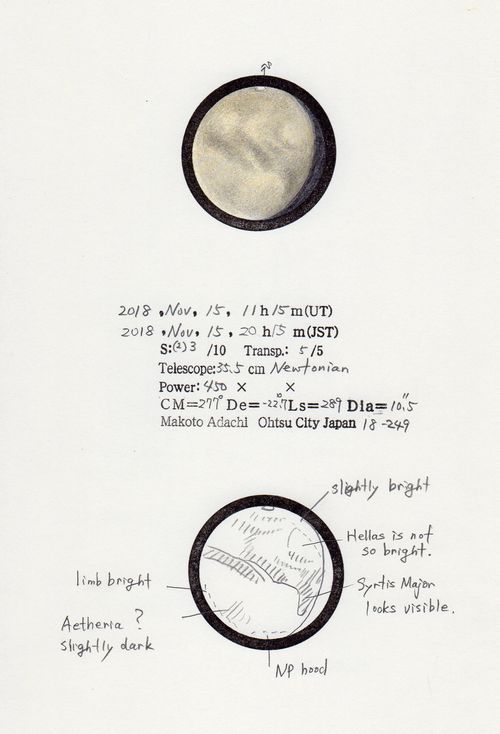 2018 , Nov , 15 , 11 h 15 m (UT)
2018 , Nov , 15 , 20 h 15 m (JST)
S:(2)3 /10 Transp.: 5 /5
Telescope: 35.5 cm Newtonian
Power: 450 × ×
CM=277° De= Ls=289 Dia=10".5
Makoto Adachi Ohtsu City Japan 18-249
slightly bright
Hellas is not
so bright.
limb bright
Syrtis Major
looks visible.
Aetheria ?
slightly dark
NP hood